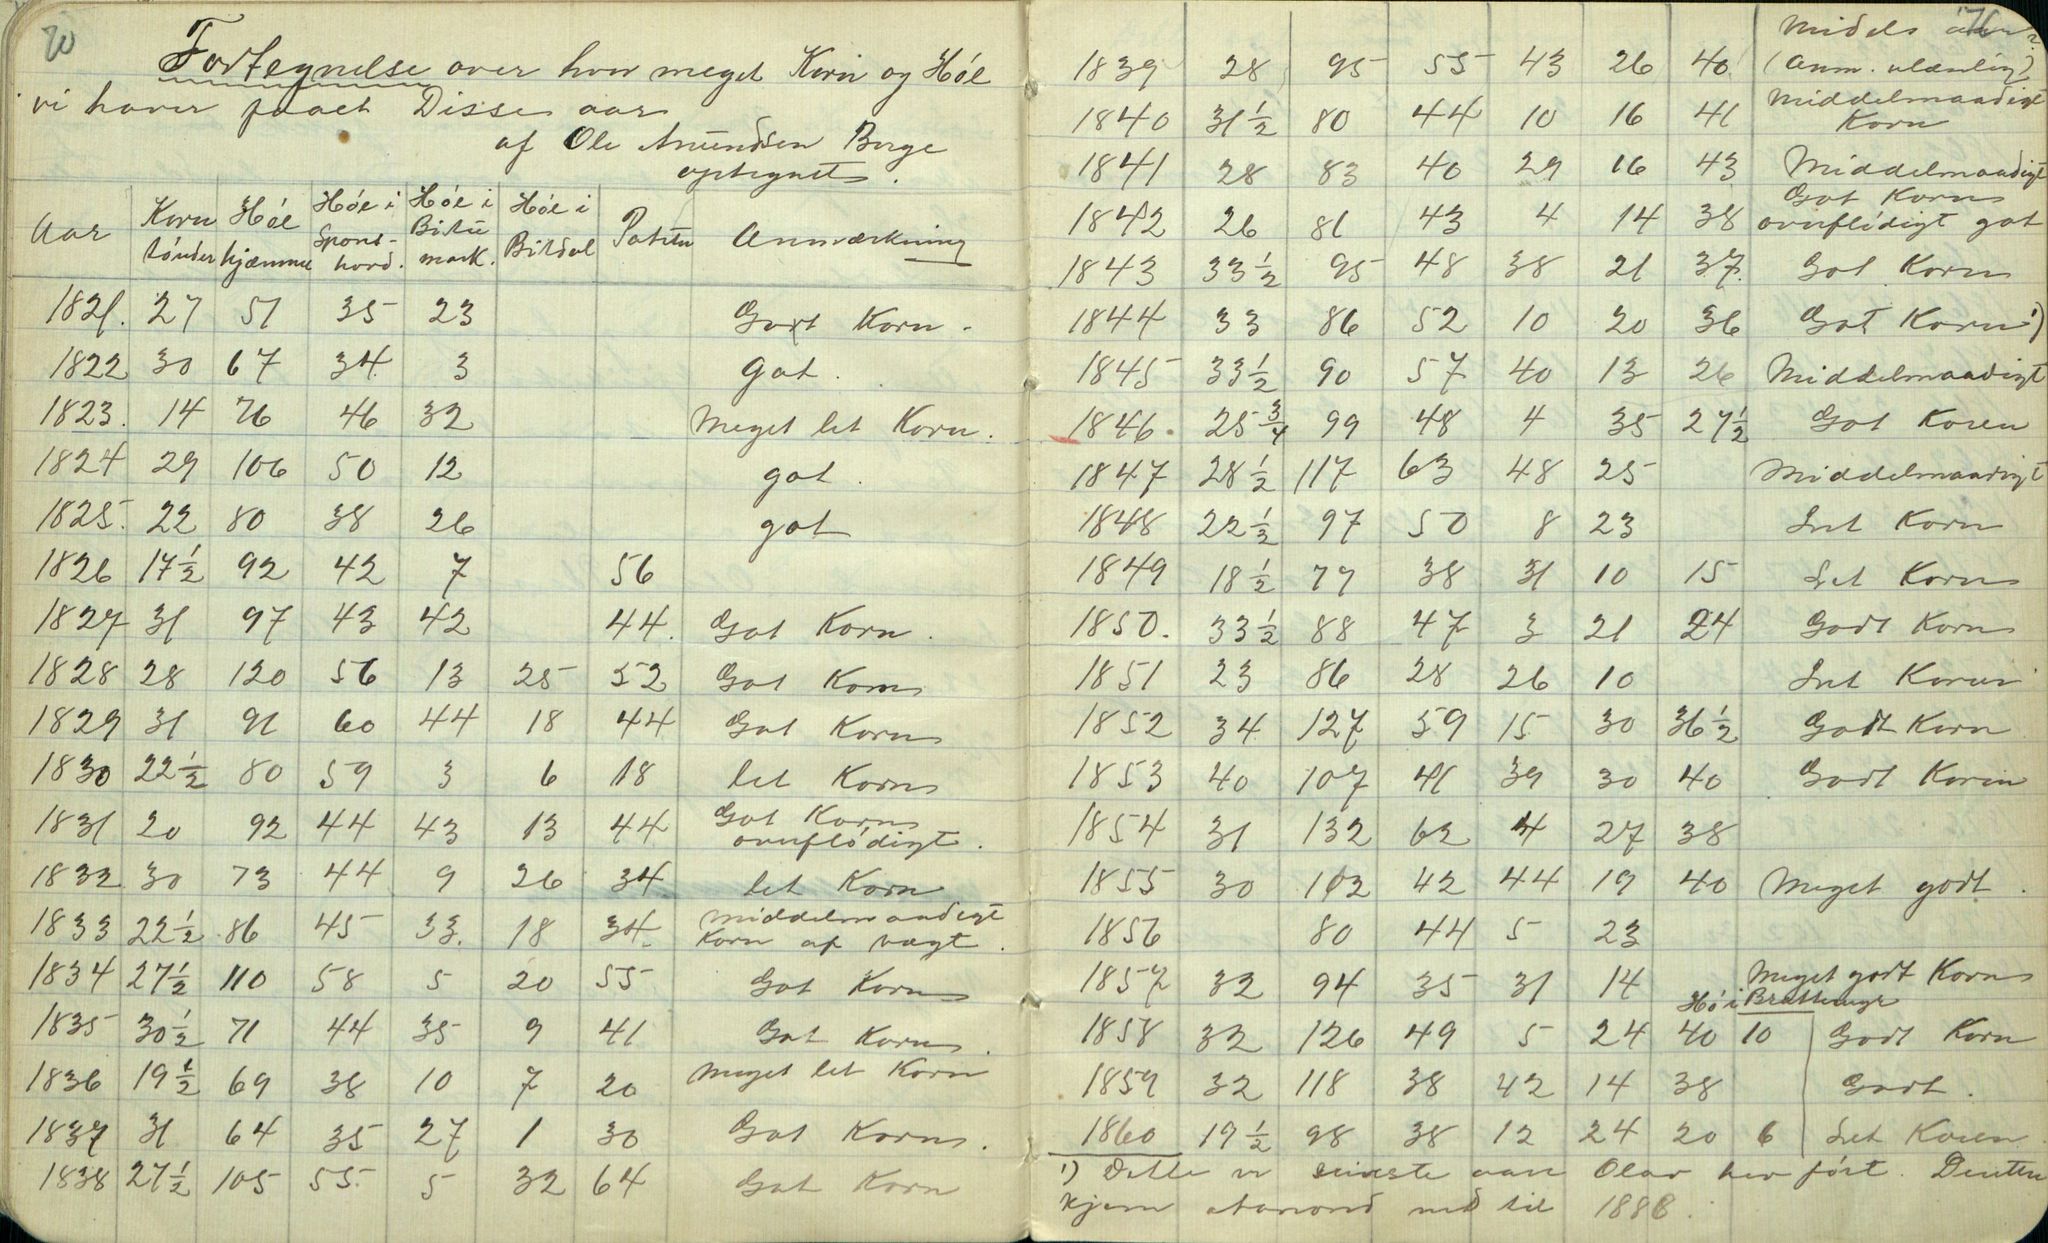 70
Fortegnelse over hvor meget Korn og Høe
vi haver faaet Disse aar
af Ole Amundsen Berge
optegnet.
Aar Korn tønder Høe hjemme Høe i Spons- hovd. Høe i Bitu mark. Høe i Bitdal Poteter Anmærkning
1821. 27 51 35 23 Godt Korn.
1822 30 67 34 3 got.
1823. 14 76 46 32 Meget let Korn.
1824 29 106 50 12 got.
1825. 22 80 38 26 got
1826 17 1/2 92 42 7 56
1827 31 97 43 42 44. Got Korn.
1828 28 120 56 13 25 52 Got Korn
1829 31 91 60 44 18 44 Got Korn
1830 22 1/2 80 59 3 6 18 let Korn
1831 20 92 44 43 13 44 Got Korn overflødigt.
1832 30 73 44 9 26 34 let Korn
1833 22 1/2 86 45 33. 18 34. Middelmaadigt Korn af vægt.
1834 27 1/2 110 58 5 20 55 Got Korn
1835 30 1/2 71 44 35 9 41 Got Korn.
1836 19 1/2 69 38 10 7 20 Meget let Korn
1837 31 64 35 27 1 30 Got Korn.
1838 27 1/2 105 55. 5 32 64 Got Korn
76
1839 28 95 55 43 26 40 Midels (Anm. ulæselig)
1840 31 1/2 80 44 10 16 41 Middelmaadigt Korn
1841 28 83 40 29 16 43 Middelmaadigt
1842 26 81 43 4 14 38 Got Korn overflødigt got
1843 33 1/2 95 48 38 21 37. Got Korn
1844 33 86 52 10 20 36 Got Korn 1)
1845 33 1/2 90 57 40 13 26 Middelmaadigt
1846. 25 3/4 99 48 4 35 27 1/2 Got Koren
1847 28 1/2 117 63 48 25 Middelmaadigt
1848 22 1/2 97 50 8 23 Let Korn
1849 18 1/2 77 38 31 10 15 Let Korn
1850. 33 1/2 88 47 3 21 24 Godt Korn
1851 23 86 28 26 10 Let Koren
1852 34 127 59 15 30 36 1/2 Godt Korn
1853 40 107 41 39 30 40 Godt Koren
1854 31 132 62 4 27 38
1855 30 102 42 44 19 40 Meget godt.
1856 80 44 5 23
1857 32 94 35 31 14 Meget godt Korn
Hø i
1858 32 126 49 5 24 40 10 Godt Korn
1859 32 118 38 42 14 38 Godt.
1860 19 1/2 98 38 12 24 20 6 Let Koren
1) Dette er sidste aar Olav hev ført. Denten
kjem Aamond ned til 1888.